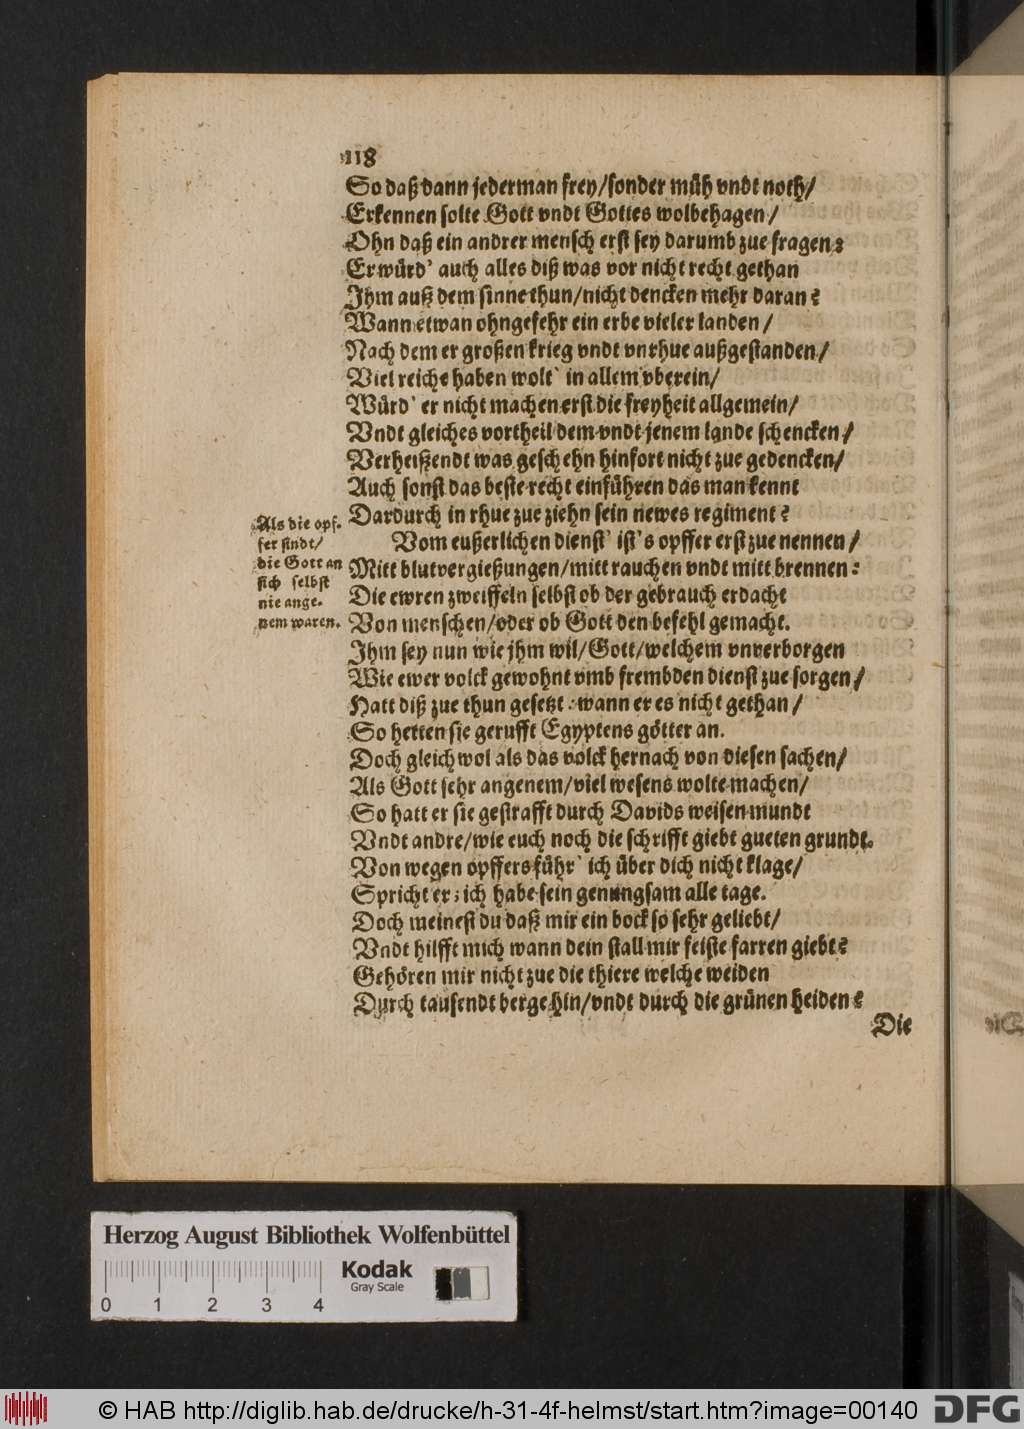 118
So daß dann jederman frey/sonder müh vndt noth/
Erkennen solte Gott vndt Gottes wolbehagen/
Ohn daß ein andrer mensch erst sey darumb zue fragen:
Er würd' auch alles diß was vor nicht recht gethan
Ihm auß dem sinne thun/nicht dencken mehr daran?
Wann etwan ohngefehr ein erbe vieler landen/
Nach dem er großen krieg vndt vnrhue außgestanden/
Viel reiche haben wolt' in allem vberein/
Würd' er nicht machen erst die freyheit allgemein/
Vndt gleiches vortheil dem vndt jenem lande schencken/
Verheißendt was geschehn hinfort nicht zue gedencken/
Auch sonst das beste recht einführen das man kennt
Dardurch in rhue zue ziehn sein newes regiment?
Als die opf-
fer sindt/
die Gott an
sich selbst
nie ange-
nem waren.
Vom eußerlichen dienst' ist's opffer erst zue nennen/
Mitt blutvergießungen/mitt rauchen vndt mitt brennen:
Die ewren zweiffeln selbst ob der gebrauch erdacht
Von menschen/oder ob Gott den befehl gemacht.
Ihm sey nun wie jhm wil/Gott/welchem vnverborgen
Wie ewer volck gewohnt vmb frembden dienst zue sorgen/
Hatt diß zue thun gesetzt: wann er es nicht gethan/
So hetten sie gerufft Egyptens götter an.
Doch gleichwol als das volck hernach von diesen sachen/
Als Gott sehr angenem/viel wesens wolte machen/
So hatt er sie gestrafft durch Davids weisen mundt
Vndt andre/wie euch noch die schrifft giebt gueten grundt.
Von wegen opffers führ' ich über dich nicht klage/
Spricht er; ich habe sein genungsam alle tage.
Doch meinest du daß mir ein bock so sehr geliebt/
Vndt hilfft mich wann dein stall mir feiste farren giebt?
Gehören mir nicht zue die thiere welche weiden
Durch tausendt berge hin/vndt durch die grünen heiden?
Die
Herzog August Bibliothek Wolfenbüttel
Kodak
Gray Scale
0 1 2 3 4
© HAB http://diglib.hab.de/drucke/h-31-4f-helmst/start.htm?image=00140
DFG